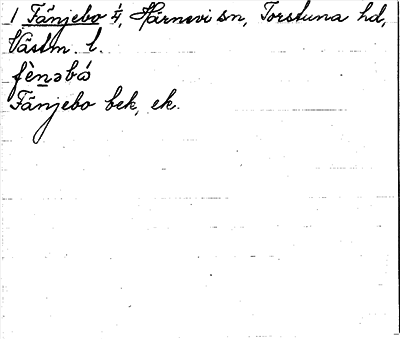 1 Fänjebo ¼, Härnevi sn, Torstuna hd,
Västm. l.
fènəbó
Fänjebo bek, ek.